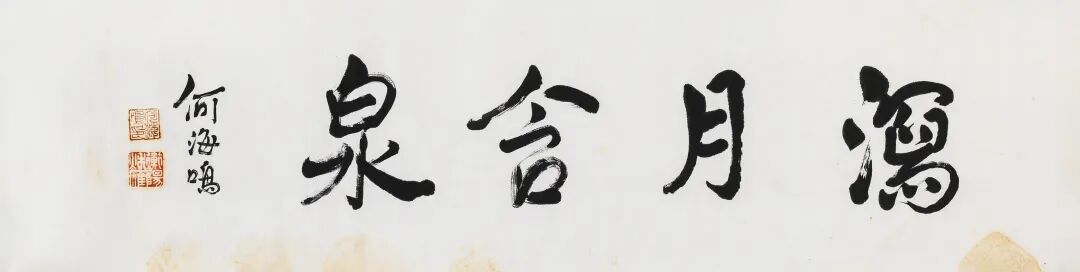 瀉月含泉
何海鳴